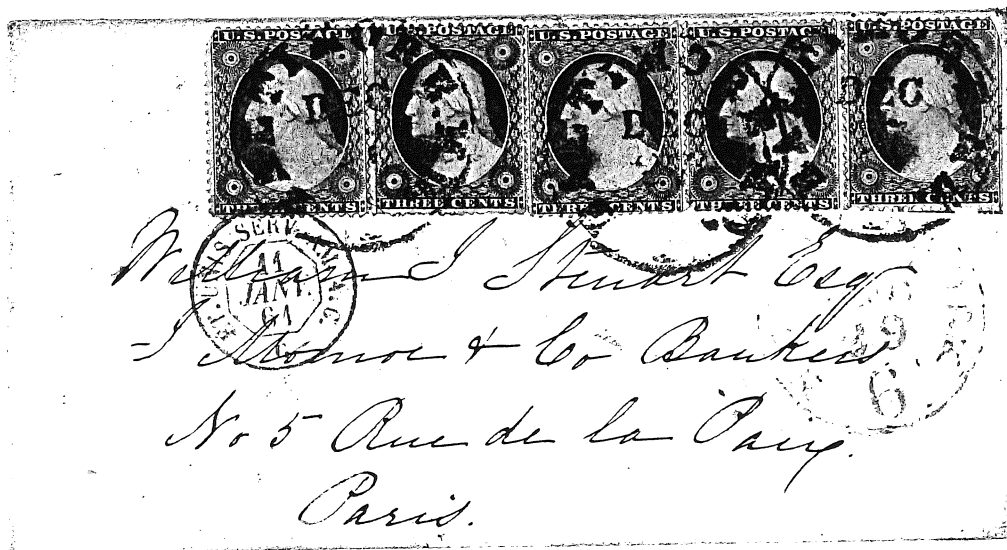 U.S. POSTAGE U.S. POSTAGE U.S. POSTAGE U.S. POSTAGE U.S. POSTAGE
DEC DEC DEC
THREE CENTS THREE CENTS THREE CENTS THREE CENTS THREE CENTS
ET. UNIS SERV. A.C.
11
JANV.
61
William J Stewart Esq
J Monroe & Co Bankers
19
6
No 5 Rue de la Paix.
Paris.